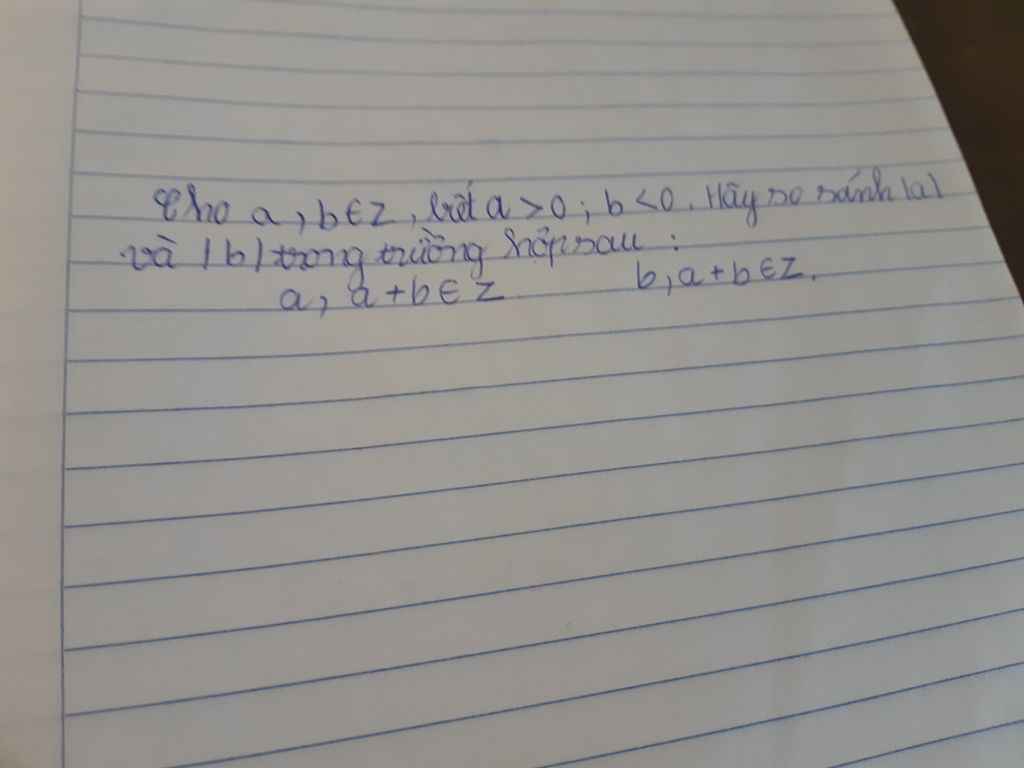 Cho a, b ∈ Z, biết a > 0 ; b < 0. Hãy so sánh |a|
và |b| trong trường hợp sau :
a, a + b ∈ Z b, a + b ∈ Z.